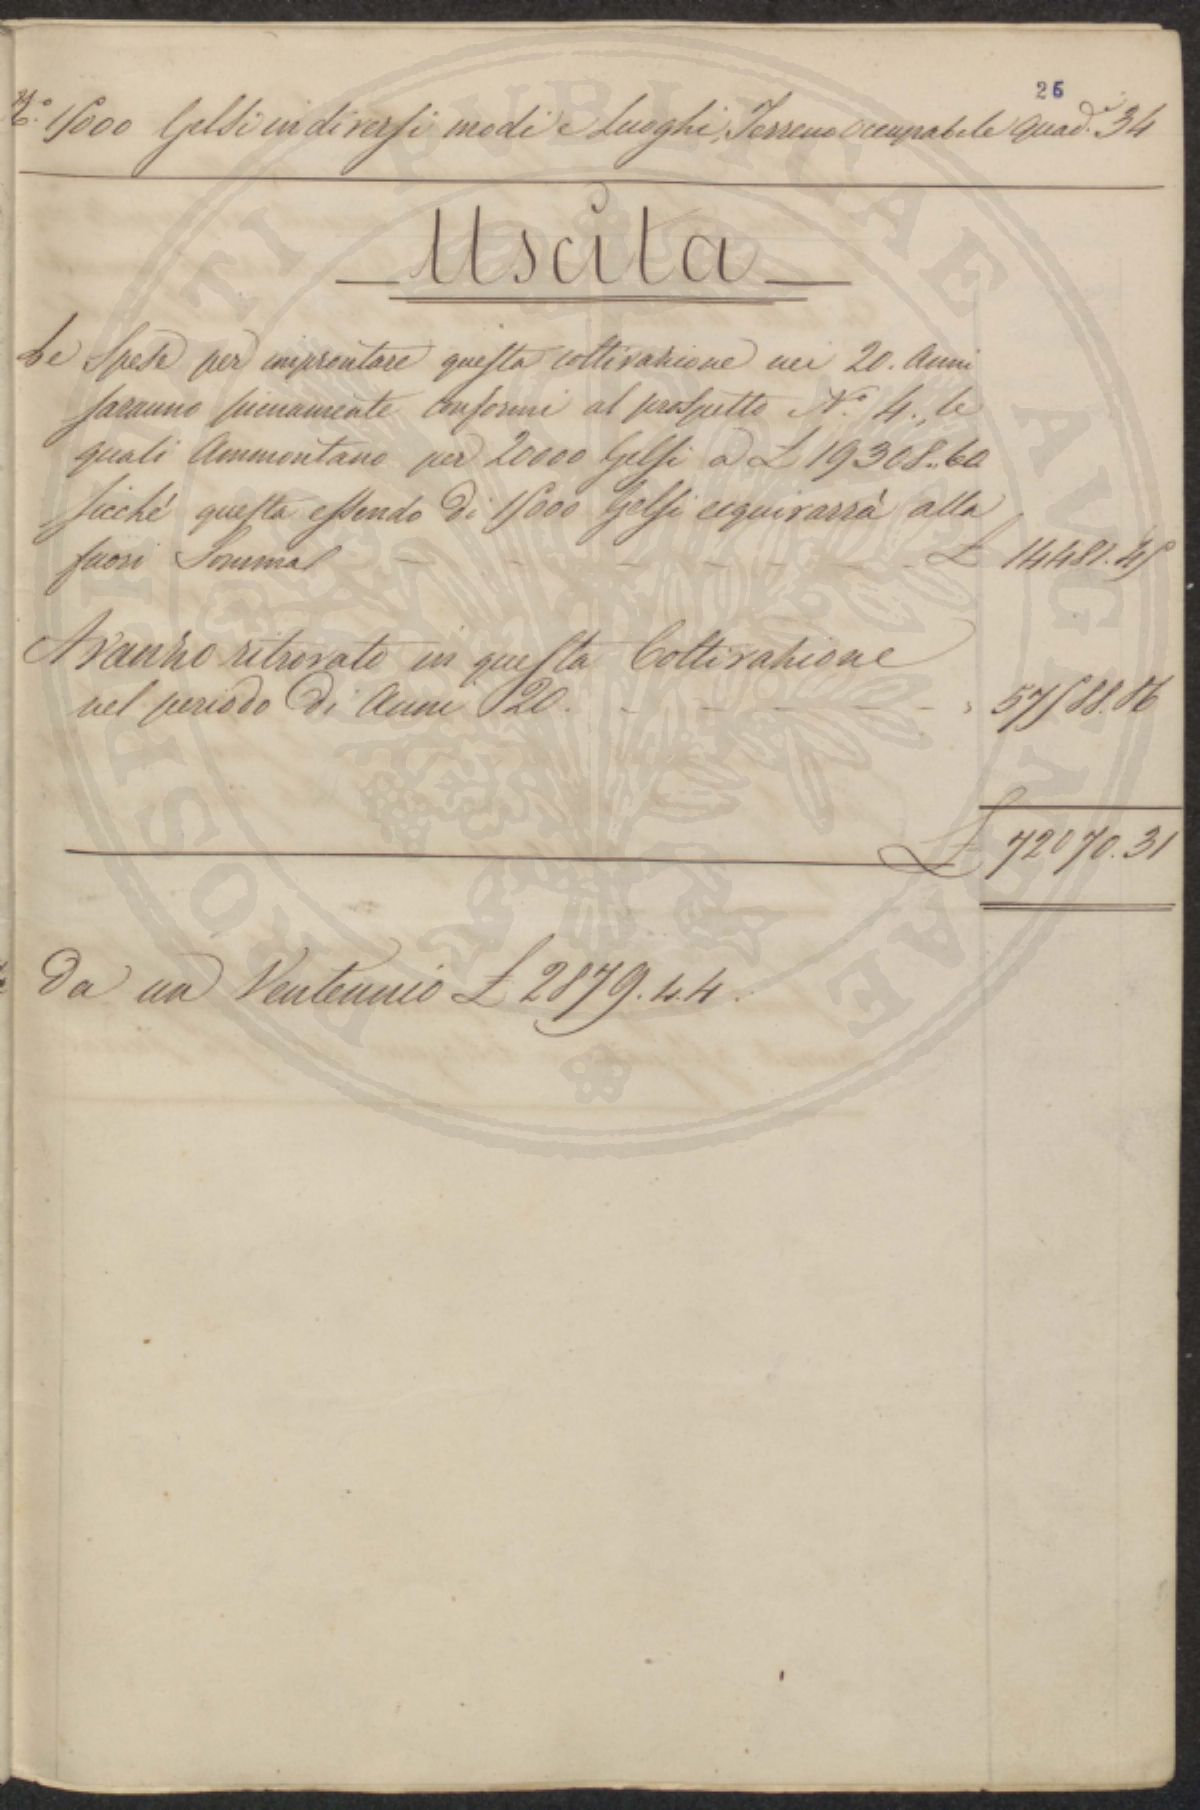 25
N.° 15000 Gelsi in diversi modi e Luoghi, Terreno occupabile Quad.i 34
Uscita
Le Spese per improntare questa coltivazione nei 20. Anni
saranno pienamente conformi al prospetto N.° 4., le
quali Ammontano per 20000 Gelsi a £ 19308..60
sicché questa essendo di 15000 Gelsi equivarrà alla
fuori Somma - - - - - - - £ 14481.45
Avanzo ritrovato in questa Coltivazione
nel periodo di Anni 20. - - - - - - " 57588.86
£ 72070.31
da un Ventennio £ 2879.44.
PROSPERITATI PUBLICAE AUGENDAE